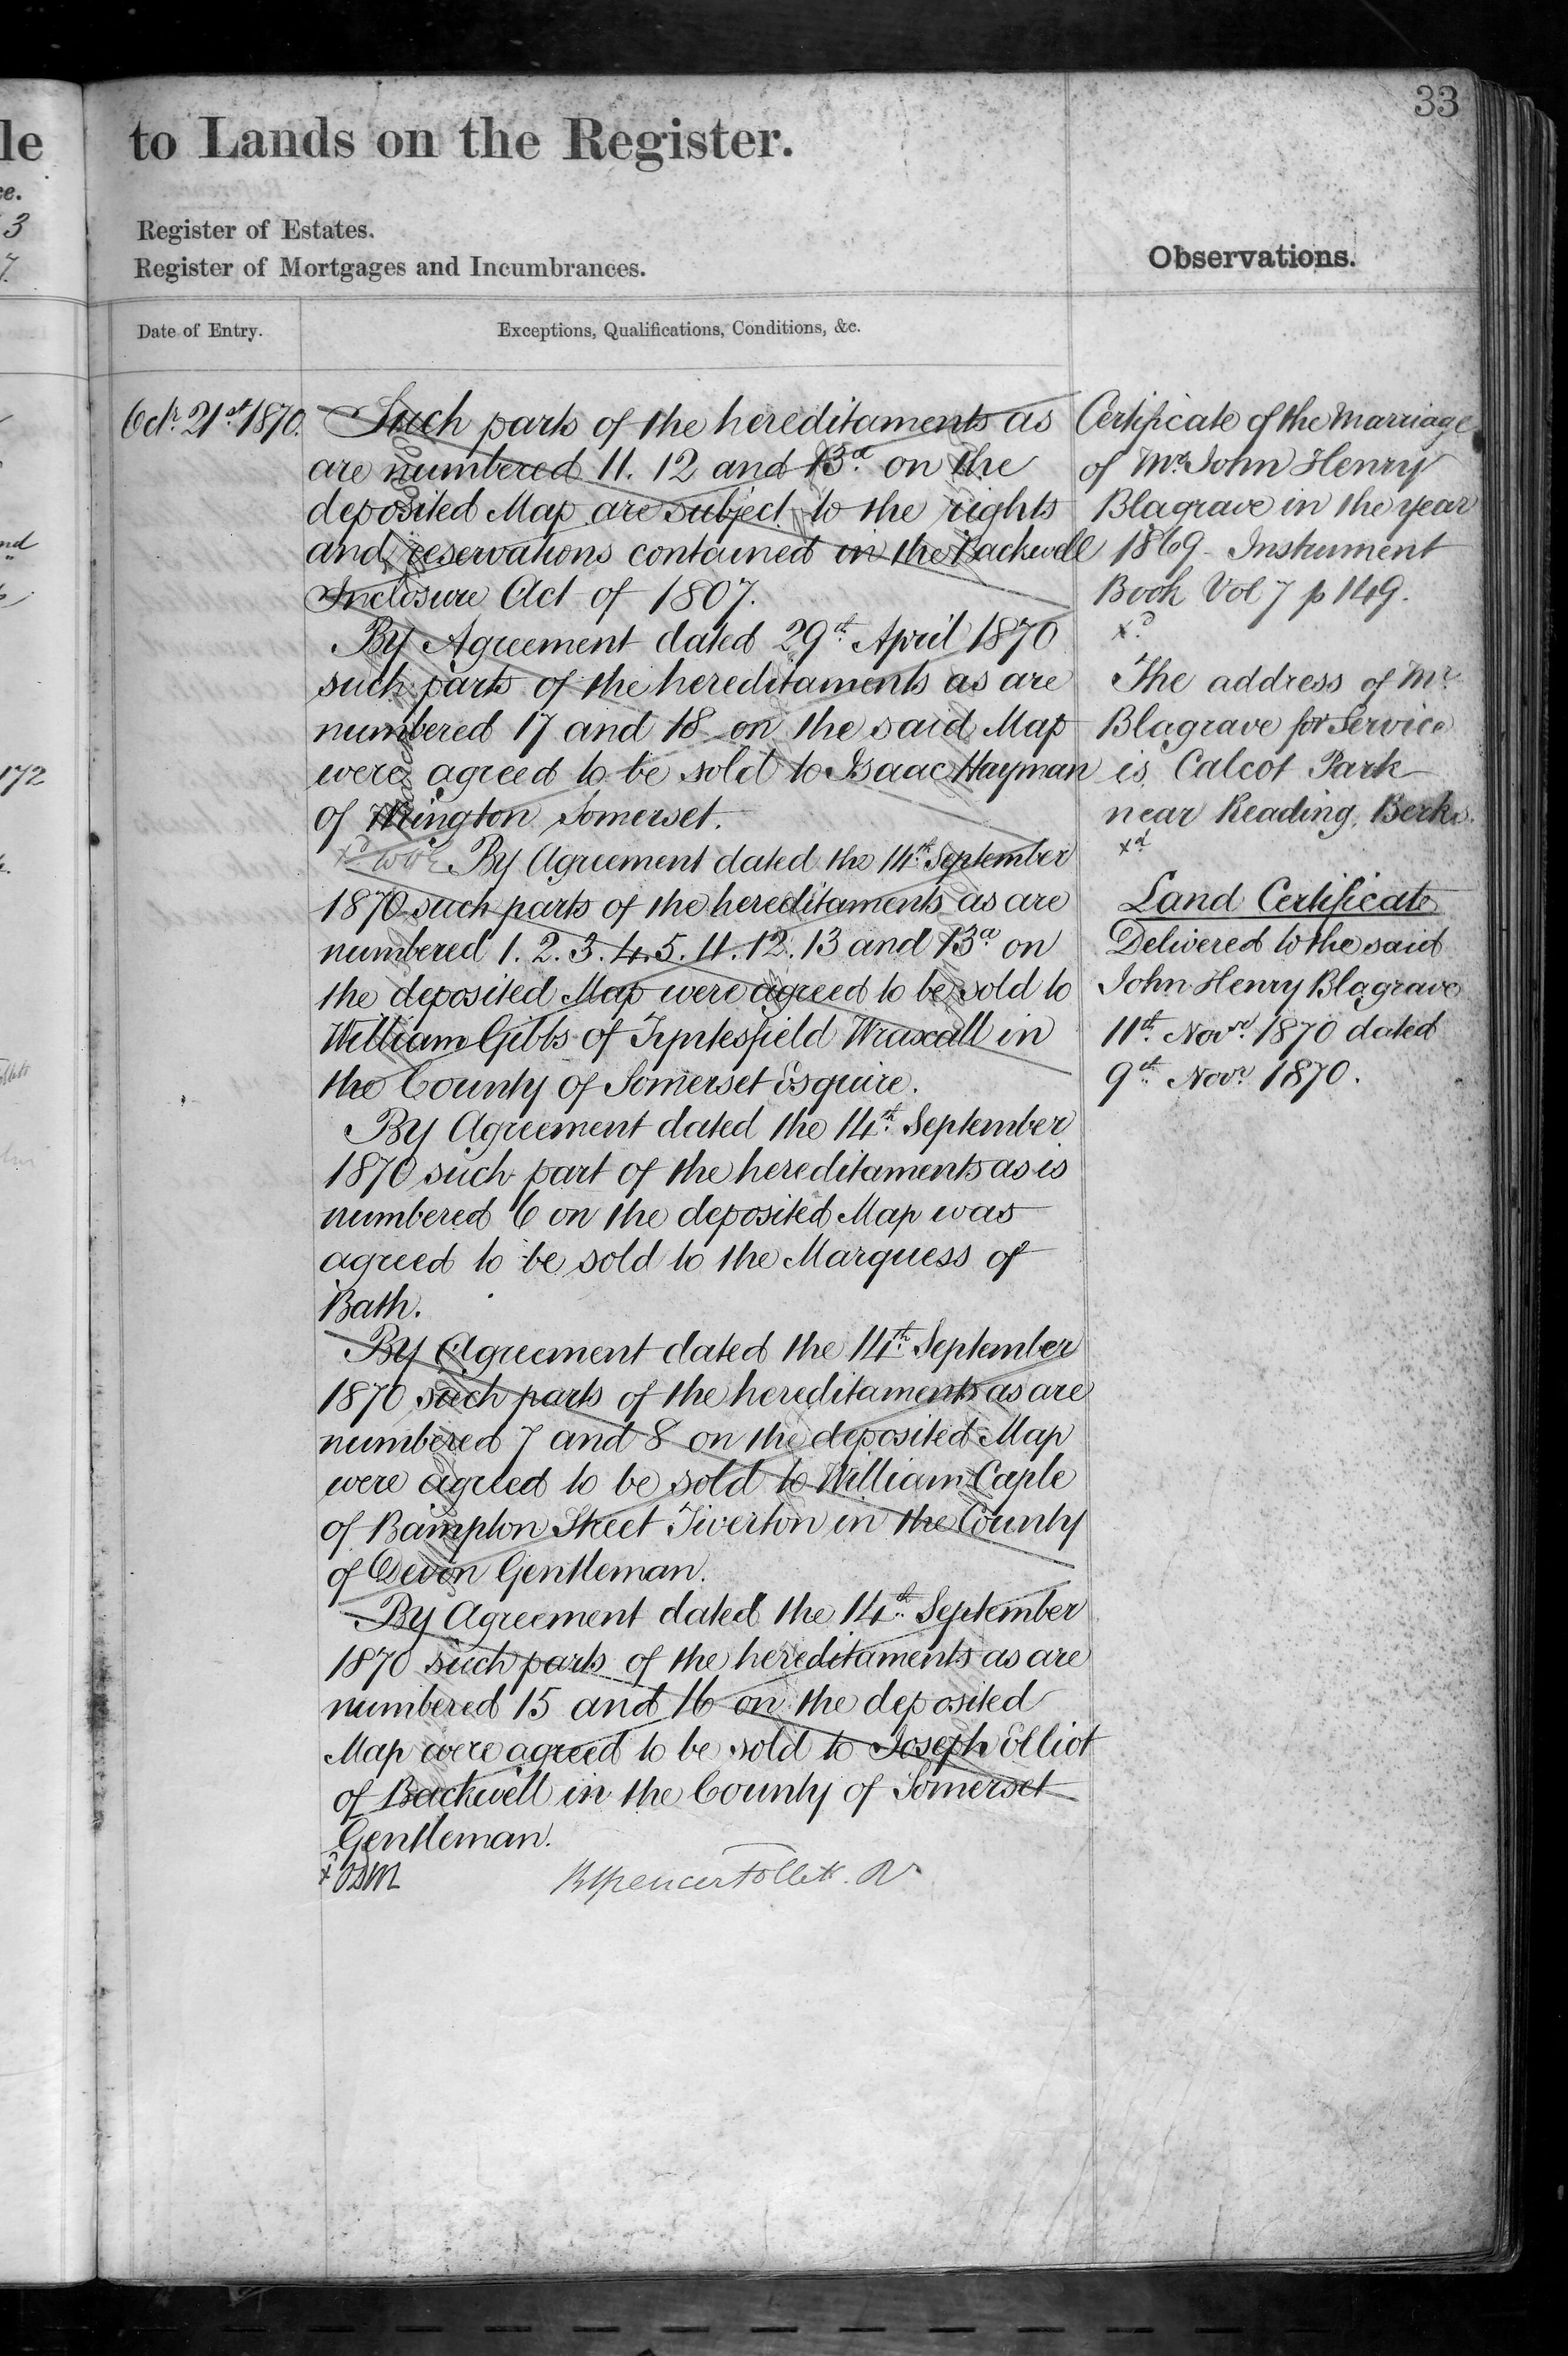 33
to Lands on the Register.
Register of Estates.
Register of Mortgages and Incumbrances.
Observations.
Date of Entry.
Exceptions, Qualifications, Conditions, &c.
Octr. 21st 1870.
Such parts of the hereditaments as
are numbered 11. 12 and 13a. on the
deposited Map are subject to the rights
and reservations contained in the Backwell
Inclosure Act of 1807.
By Agreement dated 29th April 1870
such parts of the hereditaments as are
numbered 17 and 18 on the said Map
were agreed to be sold to Isaac Hayman
of Wrington Somerset.
By Agreement dated the 14th September
1870 such parts of the hereditaments as are
numbered 1. 2. 3. 4. 5. 11. 12. 13 and 13a. on
the deposited Map were agreed to be sold to
William Gibbs of Tyntesfield Wraxall in
the County of Somerset Esquire.
By Agreement dated the 14th September
1870 such part of the hereditaments as is
numbered 6 on the deposited Map was
agreed to be sold to the Marquess of
Bath.
By Agreement dated the 14th September
1870 such parts of the hereditaments as are
numbered 7 and 8 on the deposited Map
were agreed to be sold to William Caple
of Bampton Street Tiverton in the County
of Devon Gentleman.
By Agreement dated the 14th September
1870 such parts of the hereditaments as are
numbered 15 and 16 on the deposited
Map were agreed to be sold to Joseph Elliot
of Backwell in the County of Somerset
Gentleman.
BSpencer Follett. Rr
Certificate of the Marriage
of Mr. John Henry
Blagrave in the year
1869 - Instrument
Book Vol 7 p 149.
xd
The address of Mr.
Blagrave for Service
is Calcot Park
near Reading. Berks.
xd
Land Certificate
Delivered to the said
John Henry Blagrave
11th Novr. 1870 dated
9th Novr. 1870.
le
ce.
3
7.
nd
172